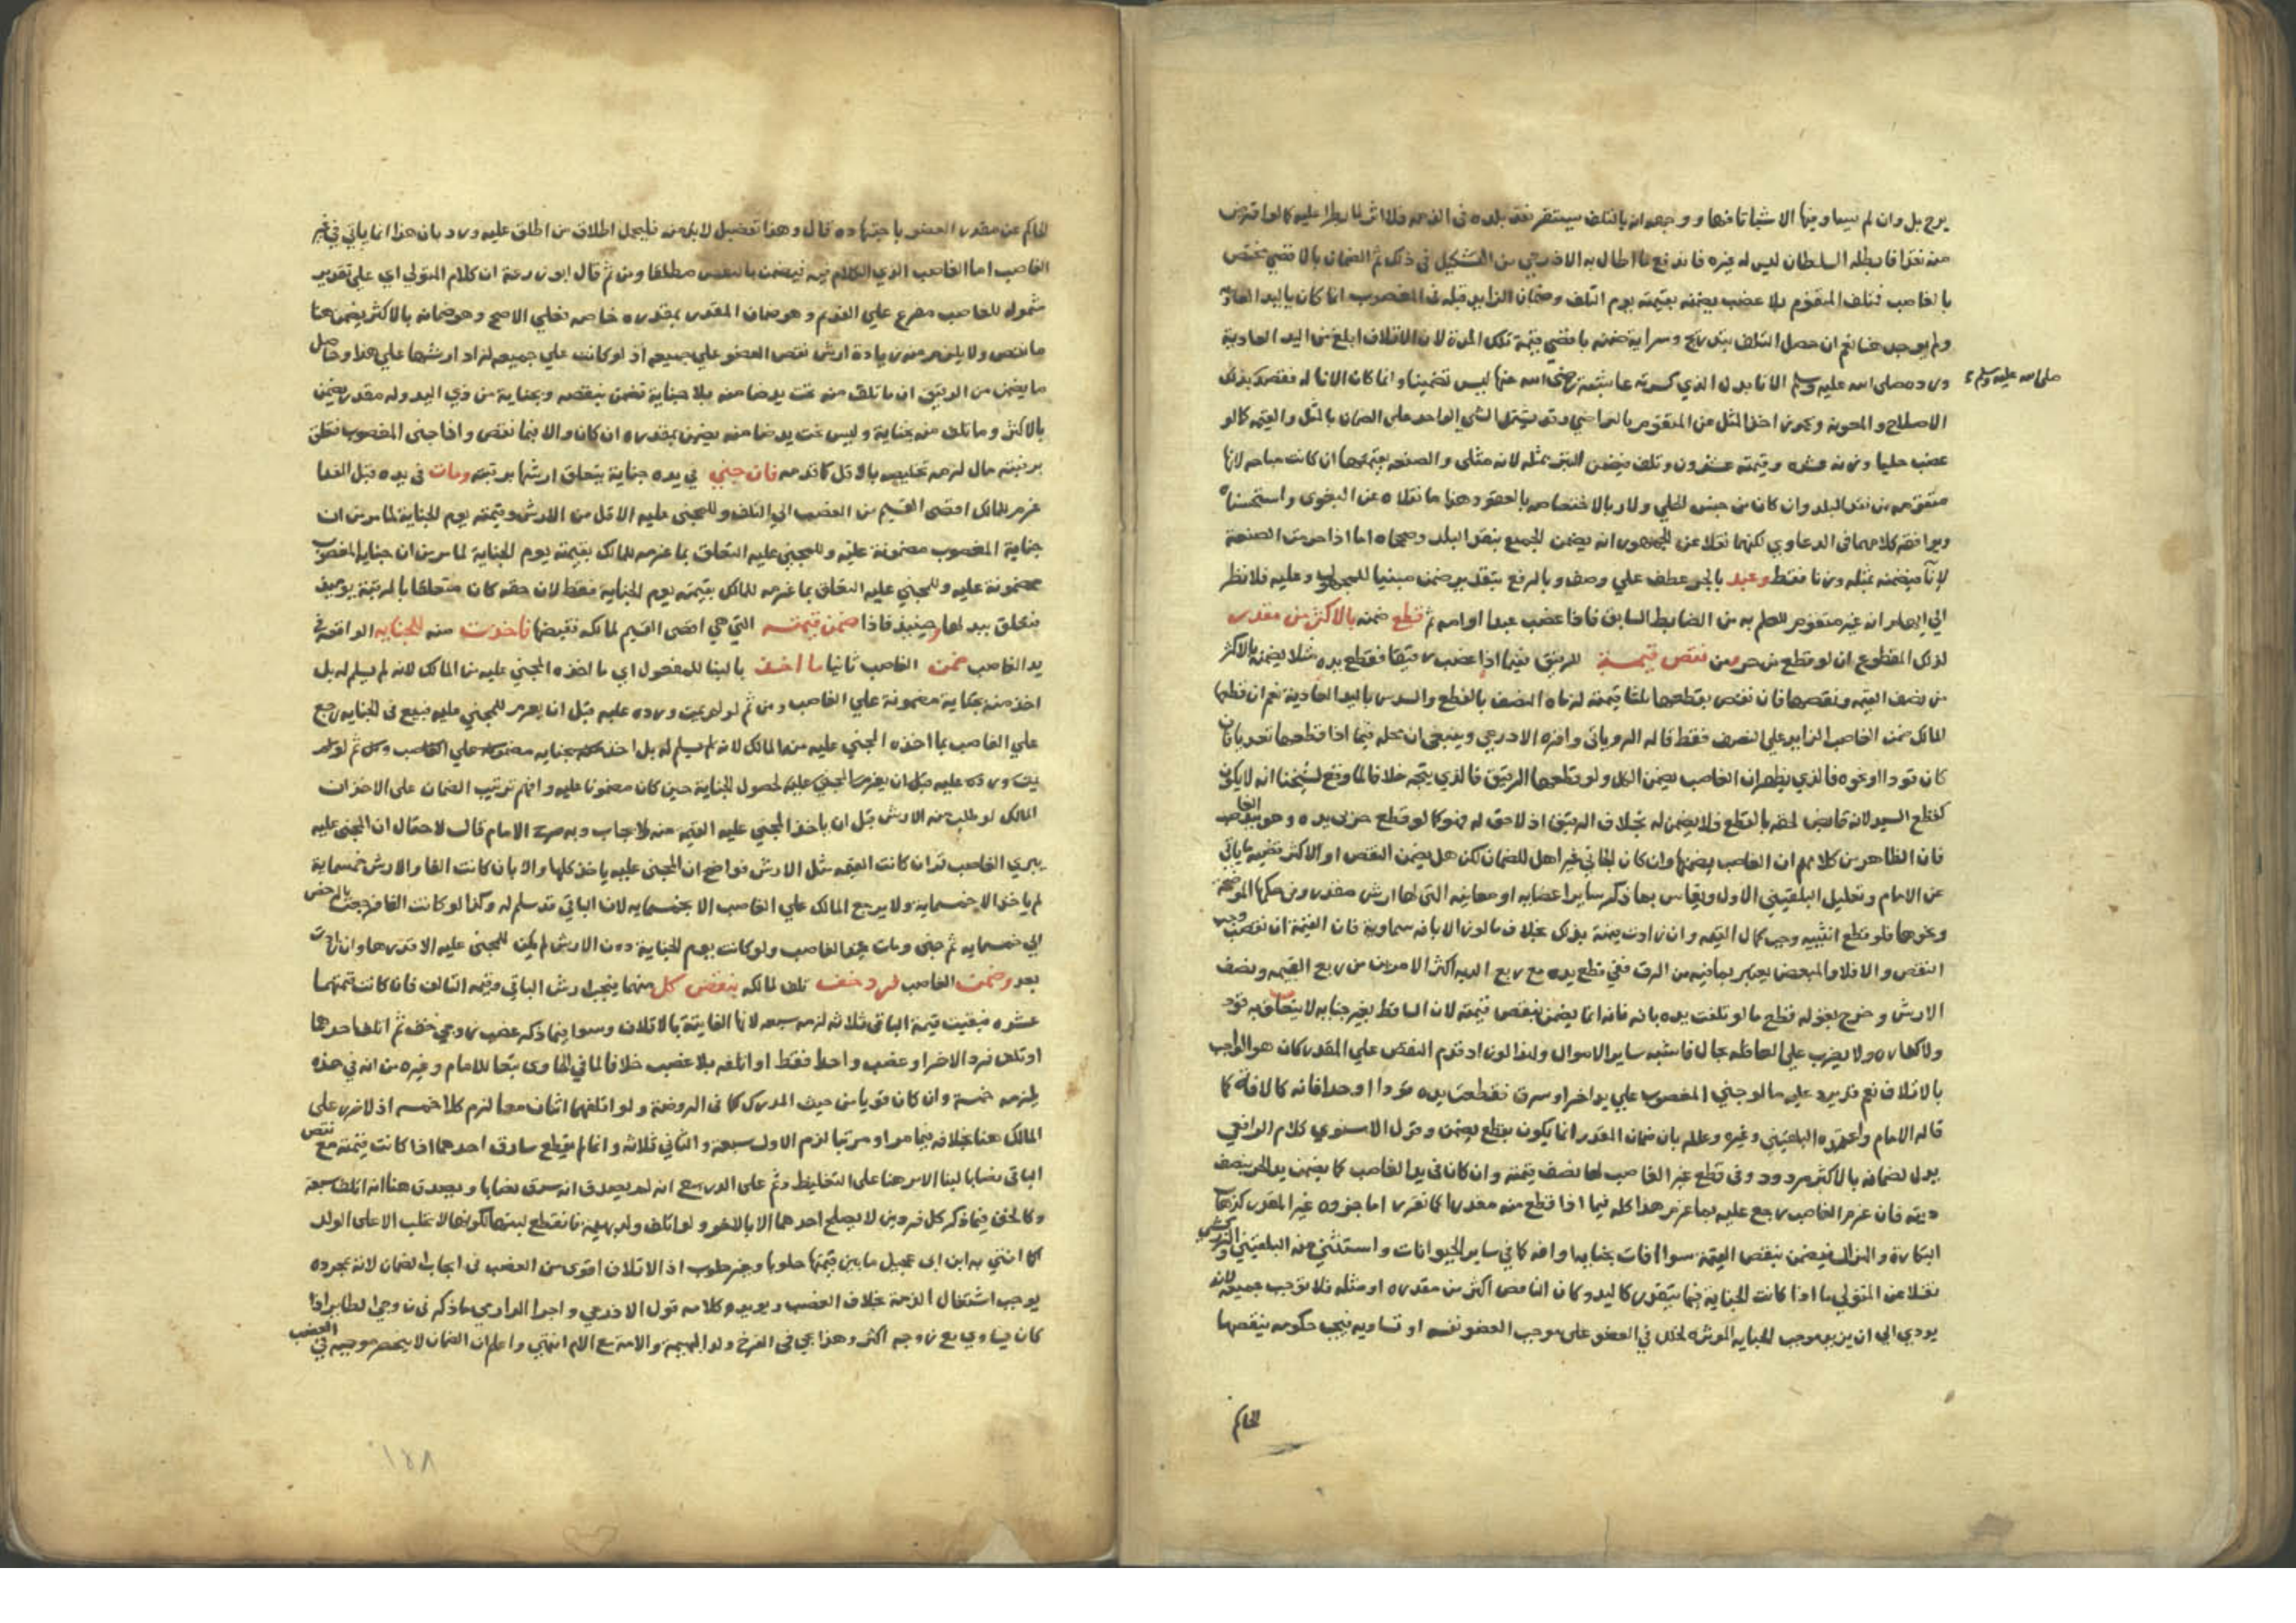 يرجح بل وان لم يساو منها الا شيا تافها ووجهه انه بالتلف يستقر نقد بلده في الذمة فلا اثر لما يطرا عليه كما لو اقترض
منه نقدا فابطله السلطان ليس له غيره فاندفع ما اطال به الاذرعي من التشكيل في ذلك ثم الضمان بالاقصى يختص
بالغاصب فتلف المتقوم بلا غصب يضمنه بقيمته يوم التلف وضمان الزايد قبله في المغصوب انما كان باليد العادية
ولم يوجد هنا نعم ان حصل التلف بتدريج وسراية ضمنه باقصى قيمة تلك المدة لان الاتلاف ابلغ من اليد العادية
ورده صلى الله عليه وسلم الانا بدل الذي كسرته عايشة رضي الله عنها ليس تضمينا وانما كان الانا له فقصد بذلك
صلى الله عليه وسلم
الاصلاح والمعونة ويجوز اخذ المثل عن المتقوم بالتراضي وقد يشتمل الشي الواحد على الضمان بالمثل والقيمة كما لو
غصب حليا وزنه عشرة وقيمته عشرون وتلف فيضمن التبر بمثله لانه مثلي والصنعة بقيمتها ان كانت مباحه لانها
متقومه من نقد البلد وان كان من جنس الحلي ولا ربا لاختصاصه بالعقود هذا ما نقلاه عن البغوي واستحسناه
ويوافقه كلامهما في الدعاوي لكنهما نقلا عن الجمهور انه يضمن الجميع بنقد البلد وصححاه اما اذا حرمت الصنعة
كانا فيضمنه بمثله وزنا فقط وعبد بالجر عطف على وصف وبالرفع بتقدير ضمن مبنيا للمجهول وعليه فلا نظر
الى ايهام انه غير متقوم للعلم به من الضابط السابق فاذا غصب عبدا او امه ثم قطع ضمنه بالاكثر من مقدر
لذلك المقطوع ان لو قطع من حر ومن نقص قيمة للرقيق فيما اذا غصب رقيقا فقطع يده مثلا يضمنه بالاكثر
من نصف القيمه ونقصها فان نقص بقطعها ثلثا قيمته لزماه النصف بالقطع والسدس باليد العادية نعم ان قطعها
المالك ضمن الغاصب الزايد على النصف فقط قاله الروياني واقره الاذرعي وينبغي ان محله فيما اذا قطعها تعديا فان
كان قودا او نحوه فالذي يظهر ان الغاصب يضمن الكل ولو قطعها الرقيق فالذي يتجه خلافا لما وقع لشيخنا انه لا يكون
كقطع السيد لانه قابض لحقه بالقطع فلا يضمن له بخلاف الرقيق اذ لا حق له فهو كما لو قطع حربي يده وهو بيد الغاصب
فان الظاهر من كلامهم ان الغاصب يضمنها وان كان الجاني غير اهل للضمان لكن هل يضمن النقص او الاكثر قضية ما ياتي
عن الامام وتعليل البلقيني الاول ويقاس بما ذكر ساير اعضايه او معانيه التي لها ارش مقدر ومن حكمها الموضحة
ونحوها فلو قطع انثييه وجب كمال القيمه وان زادت يمنه بذلك بخلاف ما لو زال بافه سماوية فان القيمة ان نقصت وجب
النقص والا فلا والمبعض يعتبر بما فيه من الرق ففي قطع يده مع ربع الدية اكثر الامرين من ربع القيمه ونصف
الارش وخرج بقوله قطع ما لو تلفت يده بافه فانه انما يضمن بنقص قيمته لان الساقط بغير جنايه لا يتعلق به قود
ولا كفاره ولا يضرب على العاقله بحال فاشبه ساير الاموال ولذا لو زاد قدم النقص على المقدر كان هو الواجب
بالاتلاف نعم قد يرد عليه ما لو جنى المغصوب على يد اخر او سرق فقطعت يده قودا او حدا فانه كالافة كما
قاله الامام واعتمده البلقيني وغيره وعلله بان ضمان المقدر انما يكون بقطع يضمن وقول الاسنوي كلام الرافعي
يدل لضمانه بالاكثر مردود وفي قطع غير الغاصب لها نصف قيمته وان كان في يد الغاصب كما يضمن يد الحر بنصف
ديته فان غرم الغاصب رجع عليه بما غرم هذا كله فيما اذا قطع منه مقدرا كما تقرر اما جزوه غير المقدر كزهاب
البكارة والهزال فيضمن بنقص القيمة سوا افات بجنايه او افه كما في ساير الحيوانات واستثنى منه البلقيني والزركشي
نقلا عن المتولي ما اذا كانت الجناية فيما يتقدر كاليد وكان الناقص اكثر من مقدره او مثله فلا نوجب جميعه لانه
يودي الى ان يزيد موجب الجنايه المورثه لخلل في العضو على موجب العضو نفسه او تساويه فيجب حكومه ينقصها
الحاكم
الحاكم عن مقدر العضو باجتهاده قال وهذا تفصيل لا بد منه فليحمل اطلاق من اطلق عليه ورد بان هذا انما ياتي في غير
الغاصب اما الغاصب الذي الكلام فيه فيضمن ما نقص مطلقا ومن ثم قال ابو زرعة ان كلام المتولي اي على تقدير
شموله للغاصب مفرع على القديم وهو ضمان المقدر بمقدره خاصه فعلى الاصح وهو ضمانه بالاكثر يضمن هنا
ما نقص ولا يلزم منه زيادة ارش نقص العضو على جميعه اذ لو كانت على جميعه لزاد ارشها على هذا وحاصل
ما يضمن من الرقيق ان ما تلف منه تحت يد ضامنه بلا جناية تضمن بنقصه وبجناية من ذي اليد وله مقدر يضمن
بالاكثر وما تلف منه بجناية وليس تحت يد ضامنه يضمن بمقدره ان كان والا فبما نقص واذا جنى المغصوب فتعلق
برقبته مال لزمه تخليصه بالاقل كما قدمه فان جنى في يده جناية يتعلق ارشها برقبته ومات في يده قبل الفدا
غرم للمالك اقصى القيم من الغصب الى التلف وللمجنى عليه الاقل من الارش وقيمته يوم الجناية لما مر من ان
جناية المغصوب مضمونة عليه وللمجني عليه التعلق بما غرمه للمالك بقيمته يوم الجناية لما مر من ان جناية المغصوب
مضمونة عليه وللمجني عليه التعلق بما غرمه للمالك بقيمته يوم الجناية فقط لان حقه كان متعلقا بالرقبة
فتعلق ببدلها وحينيذ فاذا ضمن قيمته التي هي اقصى القيم لمالكه فقبضها فاخذت منه للجنايه الواقعة في
يد الغاصب ضمن الغاصب ثانيا ما اخذ بالبنا للمفعول اي ما اخذه المجني عليه من المالك لانه لم يسلم له بل
اخذ منه بجناية مضمونة على الغاصب ومن ثم لو لم يمت ورده عليه قبل ان يغرم للمجني عليه فبيع في الجنايه رجع
على الغاصب بما اخذه المجني عليه منها المالك لانه لم يسلم له بل اخذ منه بجنايه مضمونه على الغاصب ومن ثم لو لم
يمت ورده عليه قبل ان يغرم المجني عليه لحصول الجناية حين كان مضمونا عليه وافهم ترتيب الضمان على الاخذ ان
المالك لو طلب منه الارش قبل ان ياخذ المجني عليه القيمه منه لا يجاب وبه صرح الامام قال لاحتمال ان المجنى عليه
يبري الغاصب ثم ان كانت القيمه مثل الارش فواضح ان المجنى عليه ياخذ كلها والا بان كانت الفا والارش خمسماية
لم ياخذ الا خمسماية ولا يرجع المالك على الغاصب الا بخمسمايه لان الباقي قد سلم له وكذا لو كانت الفا فرجعت بالرخص
الى خمسمايه ثم جنى ومات عند الغاصب ولو كانت يوم الجناية دون الارش لم يكن للمجنى عليه الا قدرها وان زادت
بعد وضمن الغاصب لرد خف تلف لمالكه بنقص كل منهما فيجب ارش الباقي وقيمه التالف فان كانت قيمتهما
عشره فبقيت قيمة الباقي ثلاثه لزمه سبعه لانها الفايتة بالاتلاف وسوا فيما ذكره غصب زوجي خف ثم اتلف احدهما
او تلف فرد الاخر او غصب واحدا فقط او اتلفه بلا غصب خلافا لما في الحاوي تبعا للامام وغيره من انه في هذه
يلزمه خمسة وان كان قويا من حيث المدرك كما في الروضة ولو اتلفهما اثنان معا لزم كلا خمسه اذ لا ضرر على
المالك هنا بخلافه فيما مر او مرتبا لزم الاول سبعة والثاني ثلاثه وانما لم يقطع سارق احدهما اذا كانت قيمته مع نقص
الباقي نصابا لبنا الامر هنا على التغليظ وثم على الدرء مع انه لم يصدق انه سرق نصابا ويصدق هنا انه اتلف سبعة
وكالخف فيما ذكر كل فردين لا يصلح احدهما الا بالاخر ولو اتلف ولد بهيمة فانقطع لبنها لكونها لا تحلب الا على الولد
كما افتى به ابن ابى عجيل ما بين قيمتها حلوبا وغير حلوب اذ الاتلاف اقوى من الغصب في ايجاب الضمان لانه بمجرده
يوجب اشتغال الذمة بخلاف الغصب ويويده كلامه قول الاذرعي واجرا الدارمي ما ذكر في زوجي الطاير اذا
كان يساوي مع زوجه اكثر وهذا يجي في الفرخ وولد البهيمة والامة مع الام انتهى واعلم ان الضمان لا ينحصر موجبه في الغصب
١٨٨